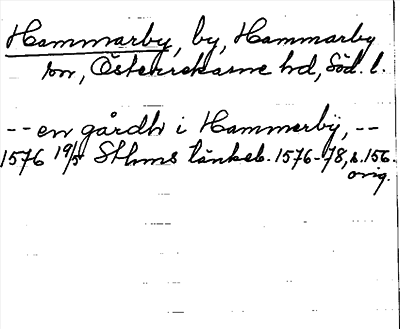 Hammarby, by, Hammarby
sn, Österrekarne hd, Söd. l.
-- en gårdh i Hammerbÿ, --
1576 19/5 Sthms tänkeb. 1576-78, s. 156.
orig.